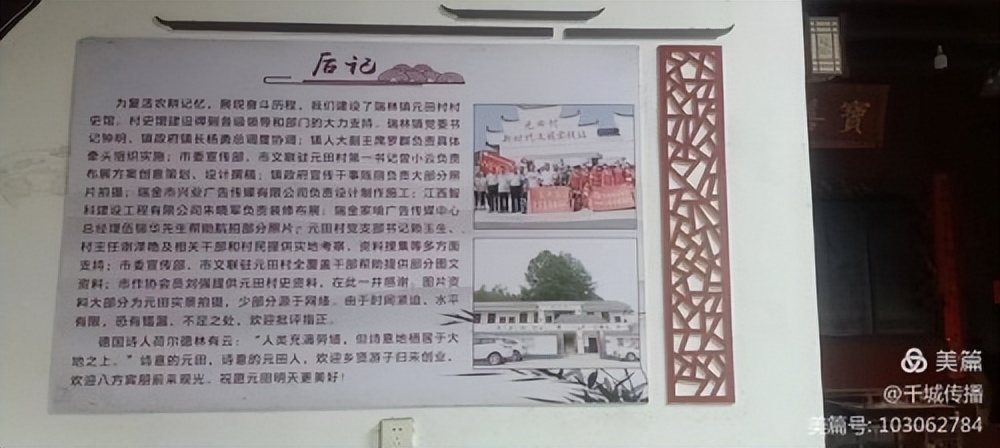 后记
为复活农耕记忆，展现奋斗历程，我们建设了瑞林镇元田村村
史馆。村史馆建设得到各级领导和部门的大力支持。瑞林镇党委书
记钟明、镇政府镇长杨勇总调度协调；镇人大副主席罗群负责具体
牵头组织实施；市委宣传部、市文联驻元田村第一书记曾小云负责
布展方案创意策划、设计撰稿；镇政府宣传干事陈鼎负责大部分照
片拍摄；瑞金市兴业广告传媒有限公司负责设计制作施工；江西智
科建设工程有限公司朱晓军负责装修布展；瑞金家喻广告传媒中心
总经理伍锦华先生帮助航拍部分照片；元田村党支部书记赖玉金、
村主任谢泽艳及相关干部和村民提供实地考察，资料搜集等多方面
支持；市委宣传部、市文联驻元田村全覆盖干部帮助提供部分图文
资料；市作协会员刘强提供元田村史资料，在此一并感谢。图片资
料大部分为元田实景拍摄，少部分源于网络。由于时间紧迫、水平
有限，恐有错漏、不足之处，欢迎批评指正。
德国诗人荷尔德林有云：“人类充满劳绩，但诗意地栖居于大
地之上。”诗意的元田，诗意的元田人，欢迎乡贤游子归来创业，
欢迎八方宾朋前来观光。祝愿元田明天更美好！
元田村
新时代文明实践站
寶
美篇
@千城传播
美篇号: 103062784